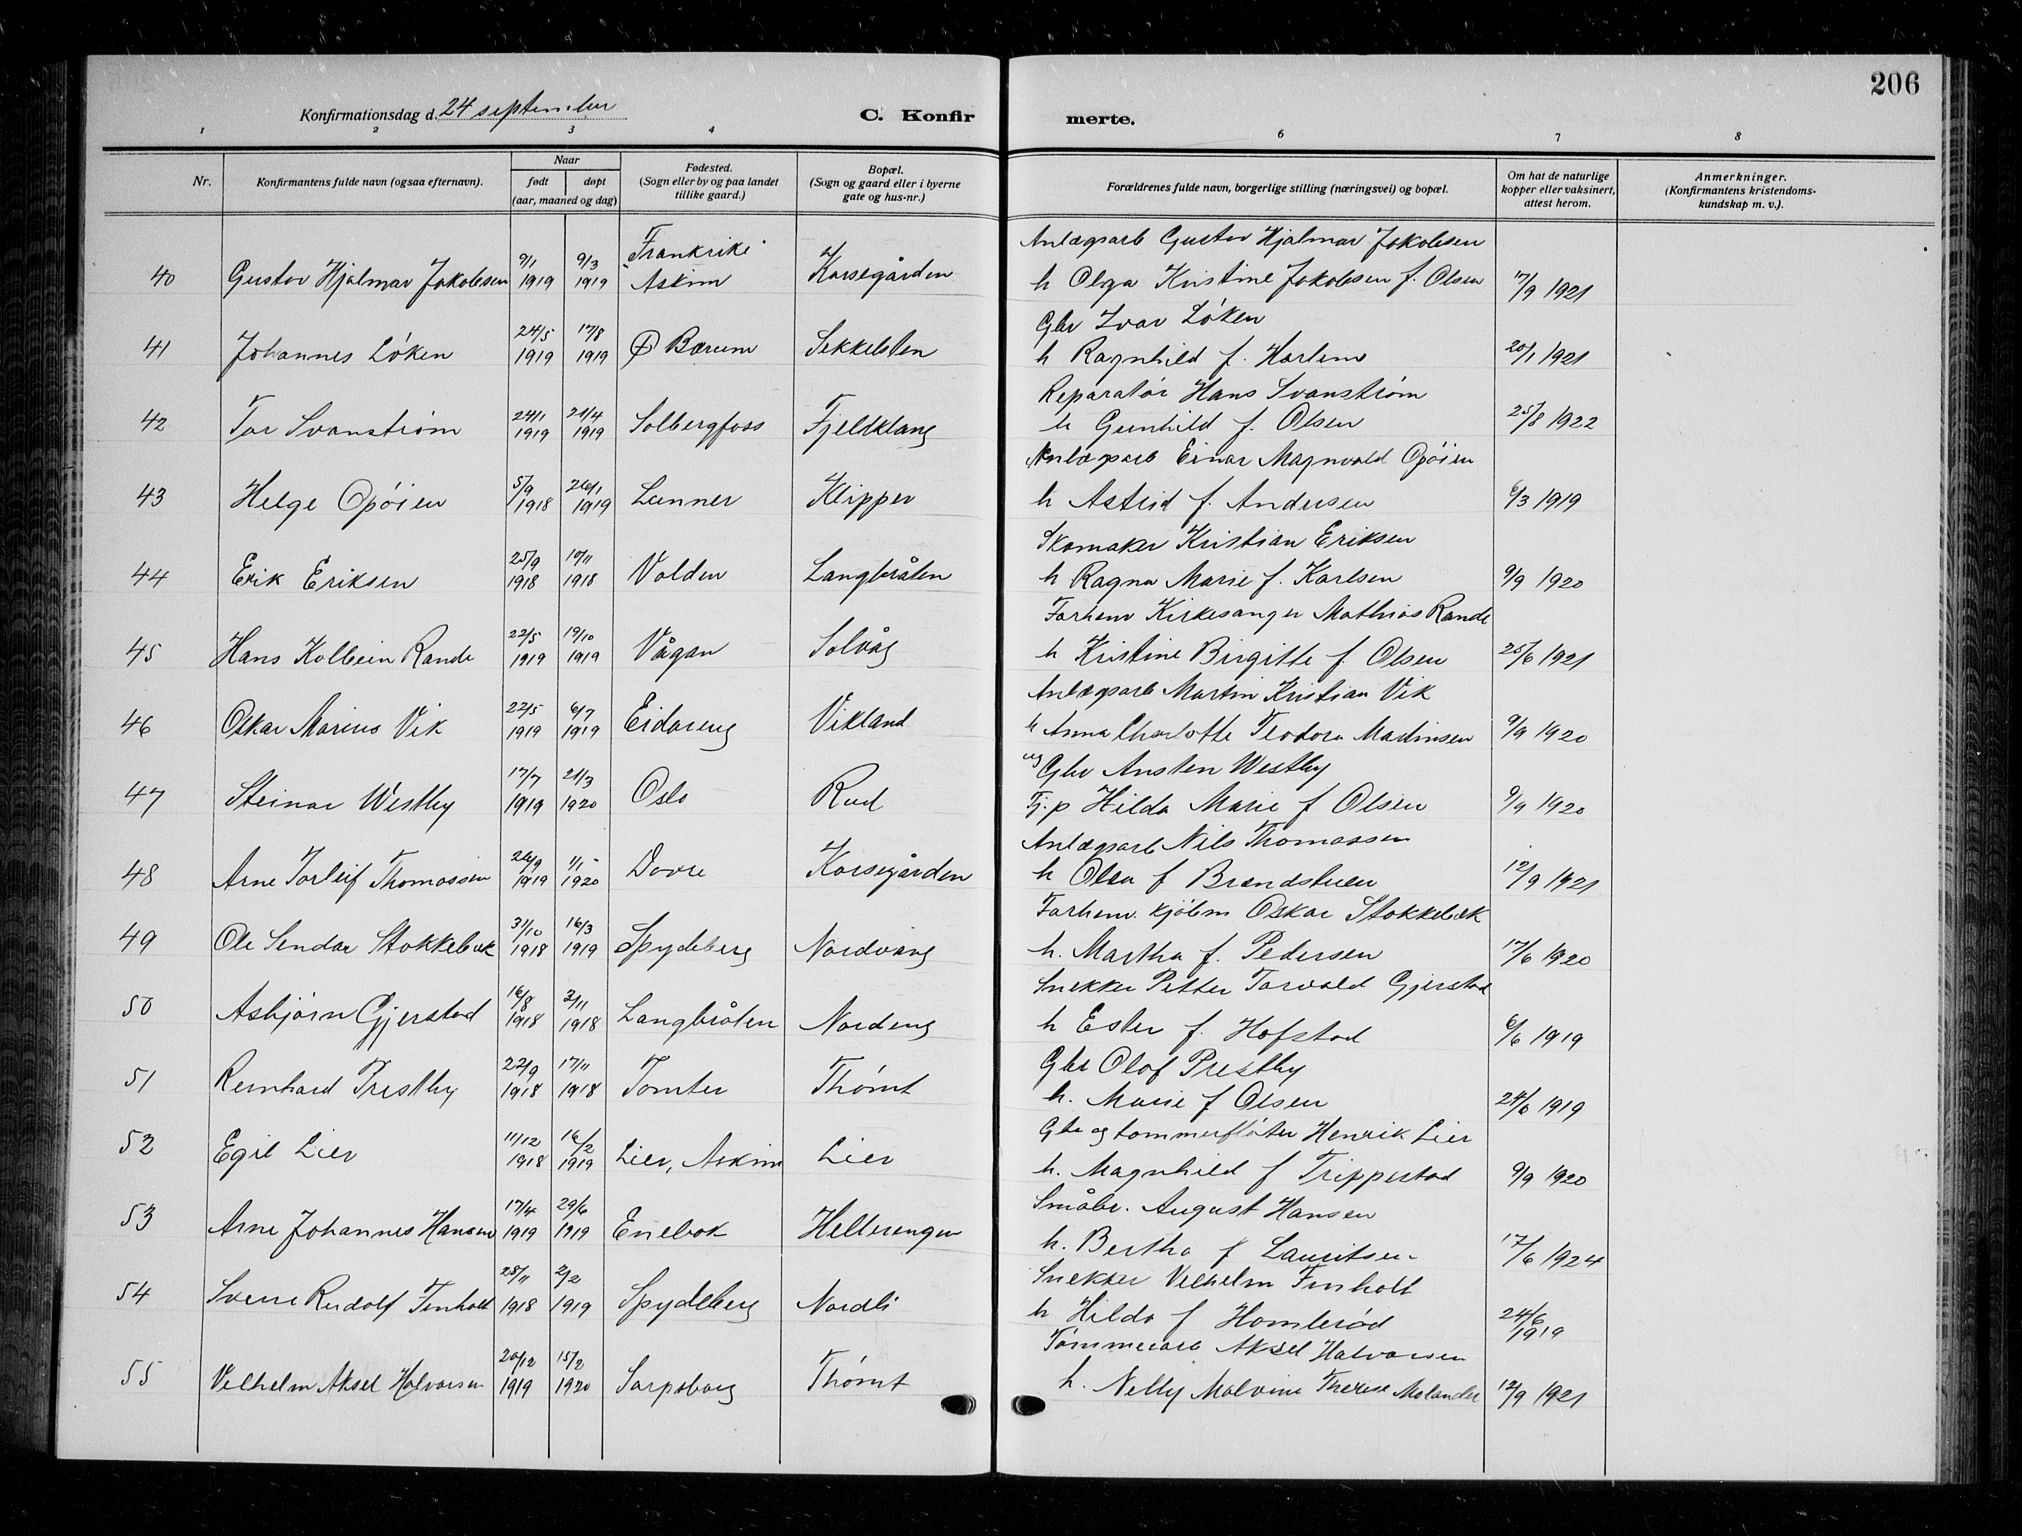 206
Konfirmationsdag d. 24 september
C. Konfir
merte.
1 2 3 4 6 7 8
Nr. Konfirmantens fulde navn (ogsaa efternavn). Naar født døpt (aar, maaned og dag) Fødested. (Sogn eller by og paa landet tillike gaard.) Bopæl. (Sogn og gaard eller i byerne gate og hus-nr.) Forældrenes fulde navn, borgerlige stilling (næringsvei) og bopæl. Om hat de naturlige kopper eller vaksinert, attest herom. Anmerkninger. (Konfirmantens kristendoms-kundskap m. v.).
Frankrike Anlægsarb Gustav Hjalmar Jakobsen
40 Gustav Hjalmar Jakobsen 9/1 1919 9/3 1919 Askim Korsegården h Olga Kristine Jakobsen f. Olsen 17/9 1921
Gbr Ivar Løken
41 Johannes Løken 24/5 1919 17/8 1919 Bærum Sekkelsten h Ragnhild f. Harlem 20/1 1921
Reparatør Hans Svanstrøm
42 Tor Svanstrøm 24/1 1919 21/4 1919 Solbergfoss Fjeldklang h Gunhild f. Olsen 25/8 1922
Anlægsarb Einar Magnvald Opøien
43 Helge Opøien 5/9 1918 26/1 1919 Lunner Klipper h Astrid f. Andersen 6/3 1919
Skomaker Kristian Eriksen
44 Erik Eriksen 25/9 1918 10/11 1918 Volden Langbråten h Ragna Marie f. Karlsen 9/9 1920
Forhenv Kirkesanger Mathias Rande
45 Hans Kolbein Rande 22/5 1919 19/10 1919 Vågan Solvåg h Kristine Birgitte f. Olsen 25/6 1921
Anlægsarb Martin Kristian Vik
46 Oskar Marius Vik 22/5 1919 6/7 1919 Eidareng Vikland h Anna Charlotte Teodora Martinsen 9/9 1920
ug Gbr Ansten Westby
47 Steinar Westby 17/7 1919 21/3 1920 Oslo Rud Tj.p Hilda Marie f Olsen 9/9 1920
Anlægsarb Nils Thomassen
48 Arne Torleif Thomassen 26/9 1919 1/1 1920 Dovre Korsegården h Olea f Brændstuen 12/9 1921
Forhenv. kjøbm Oskar Stokkebæk
49 Ole Sendar Stokkebæk 31/10 1918 16/3 1919 Spydeberg Nordvang h. Martha f. Pedersen 17/6 1920
Snekker Petter Torvald Gjerstad
50 Asbjørn Gjerstad 16/8 1918 3/11 1918 Langbråten Nordeng h Ester f. Hofstad 6/6 1919
Gbr Olof Prestby
51 Reinhard Prestby 22/9 1918 17/11 1918 Tomter Thømt h. Marie f Olsen 24/6 1919
Gbr og tømmerfløter Henrik Lier
52 Egil Lier 11/12 1918 16/2 1919 Lier, Askim Lier h. Magnhild f Trippestad 9/9 1920
Småbr. August Hansen
53 Arne Johannes Hansen 17/4 1919 29/6 1919 Enebak Hellerengen h. Bertha f Lauritsen 17/6 1924
Snekker Vilhelm Finholt
54 Sverre Rudolf Finholt 28/11 1918 2/2 1919 Spydeberg Nordli h Hilda f Homlerød 24/6 1919
Tømmerarb Aksel Halvorsen
55 Vilhelm Aksel Halvorsen 20/12 1919 15/2 1920 Sarpsborg Thømt h. Nelly Malvine Therese Molander 12/9 1921